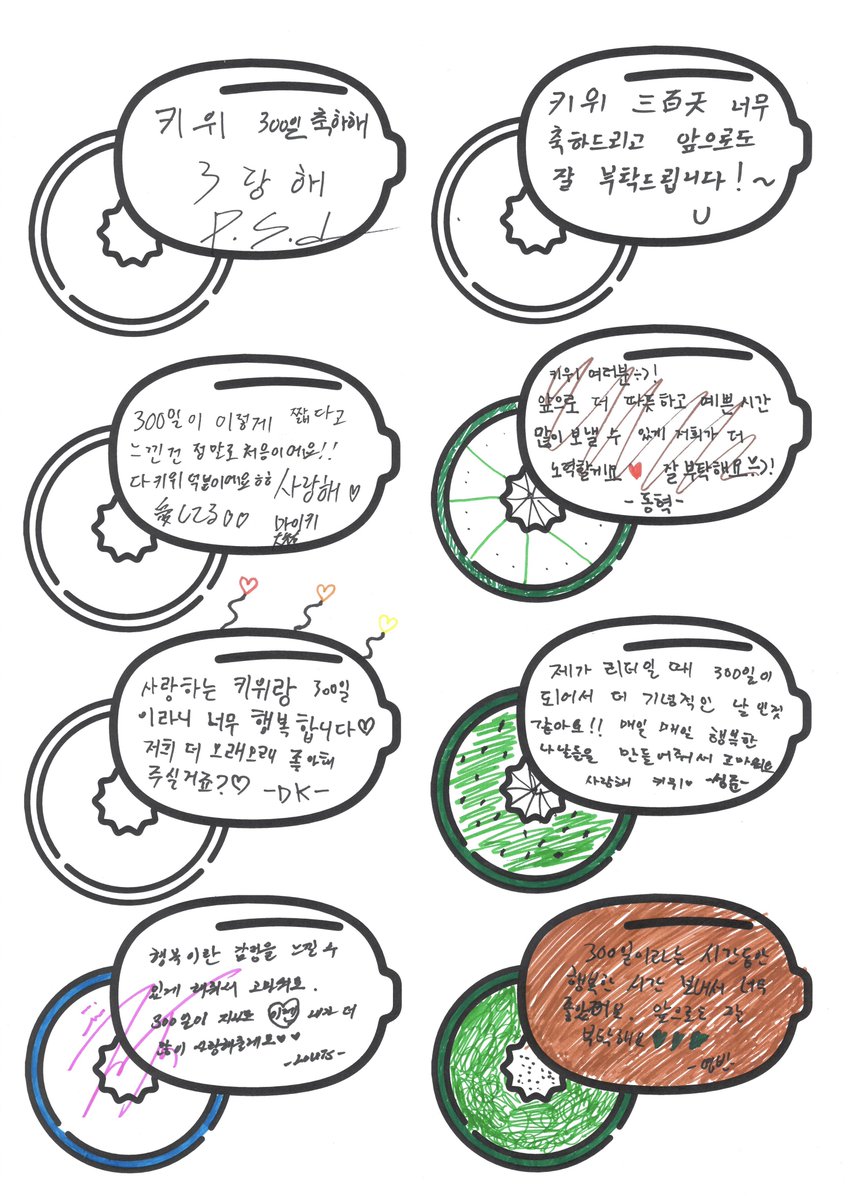 키위 300일 축하해
3당해
P.S.d
키위 三百天 너무
축하드리고 앞으로도
잘 부탁드립니다!~
U
300일이 이렇게 짧다고
느낀건 정말로 처음이에요!!
다 키위 덕분이에요ㅎㅎ 사랑해♡
愛し2300
마이키
키위 여러분:-)!
앞으로 더 따듯하고 예쁜시간
많이 보낼 수 있게 저희가 더
노력할게요♥ 잘 부탁해요:-)!
-동혁-
사랑하는 키위랑 300일
이라니 너무 행복합니다♡
저희 더 오래오래 좋아해
주실거죠?♡ -DK-
제가 리더일 때 300일이
되어서 더 기념적인 날인것
같아요!! 매일 매일 행복한
나날들을 만들어줘서 고마워요
사랑해 키위♥ -성준-
행복이란 감정을 느낄 수
있게 해줘서 고마워요.
300일이 지나도 이멘 내가 더
많이 사랑해줄게요♥♥
-LOUIS-
300일이라는 시간동안
행복한 시간 보내서 너무
좋았어요. 앞으로도 잘
부탁해요♥♥♥
-영빈-